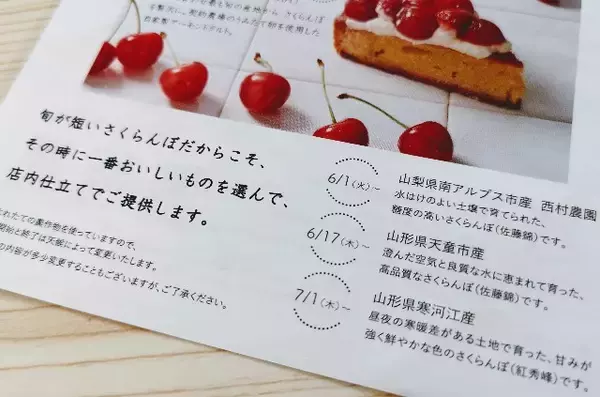 さくらんぼ
自家製アーモンドタルト。
旬が短いさくらんぼだからこそ、
その時に一番おいしいものを選んで、
店内仕立てでご提供します。
れたての農作物を使っていますので、
開始と終了は天候によって変更いたします。
の内容が多少変更することもございますが、ご了承ください。
6/1(火)~
山梨県南アルプス市産 西村農園
水はけのよい土壌で育てられた、
糖度の高いさくらんぼ(佐藤錦)です。
6/17(木)~
山形県天童市産
澄んだ空気と良質な水に恵まれて育った、
高品質なさくらんぼ(佐藤錦)です。
7/1(木)~
山形県寒河江産
昼夜の寒暖差がある土地で育った、甘みが
強く鮮やかな色のさくらんぼ(紅秀峰)です。